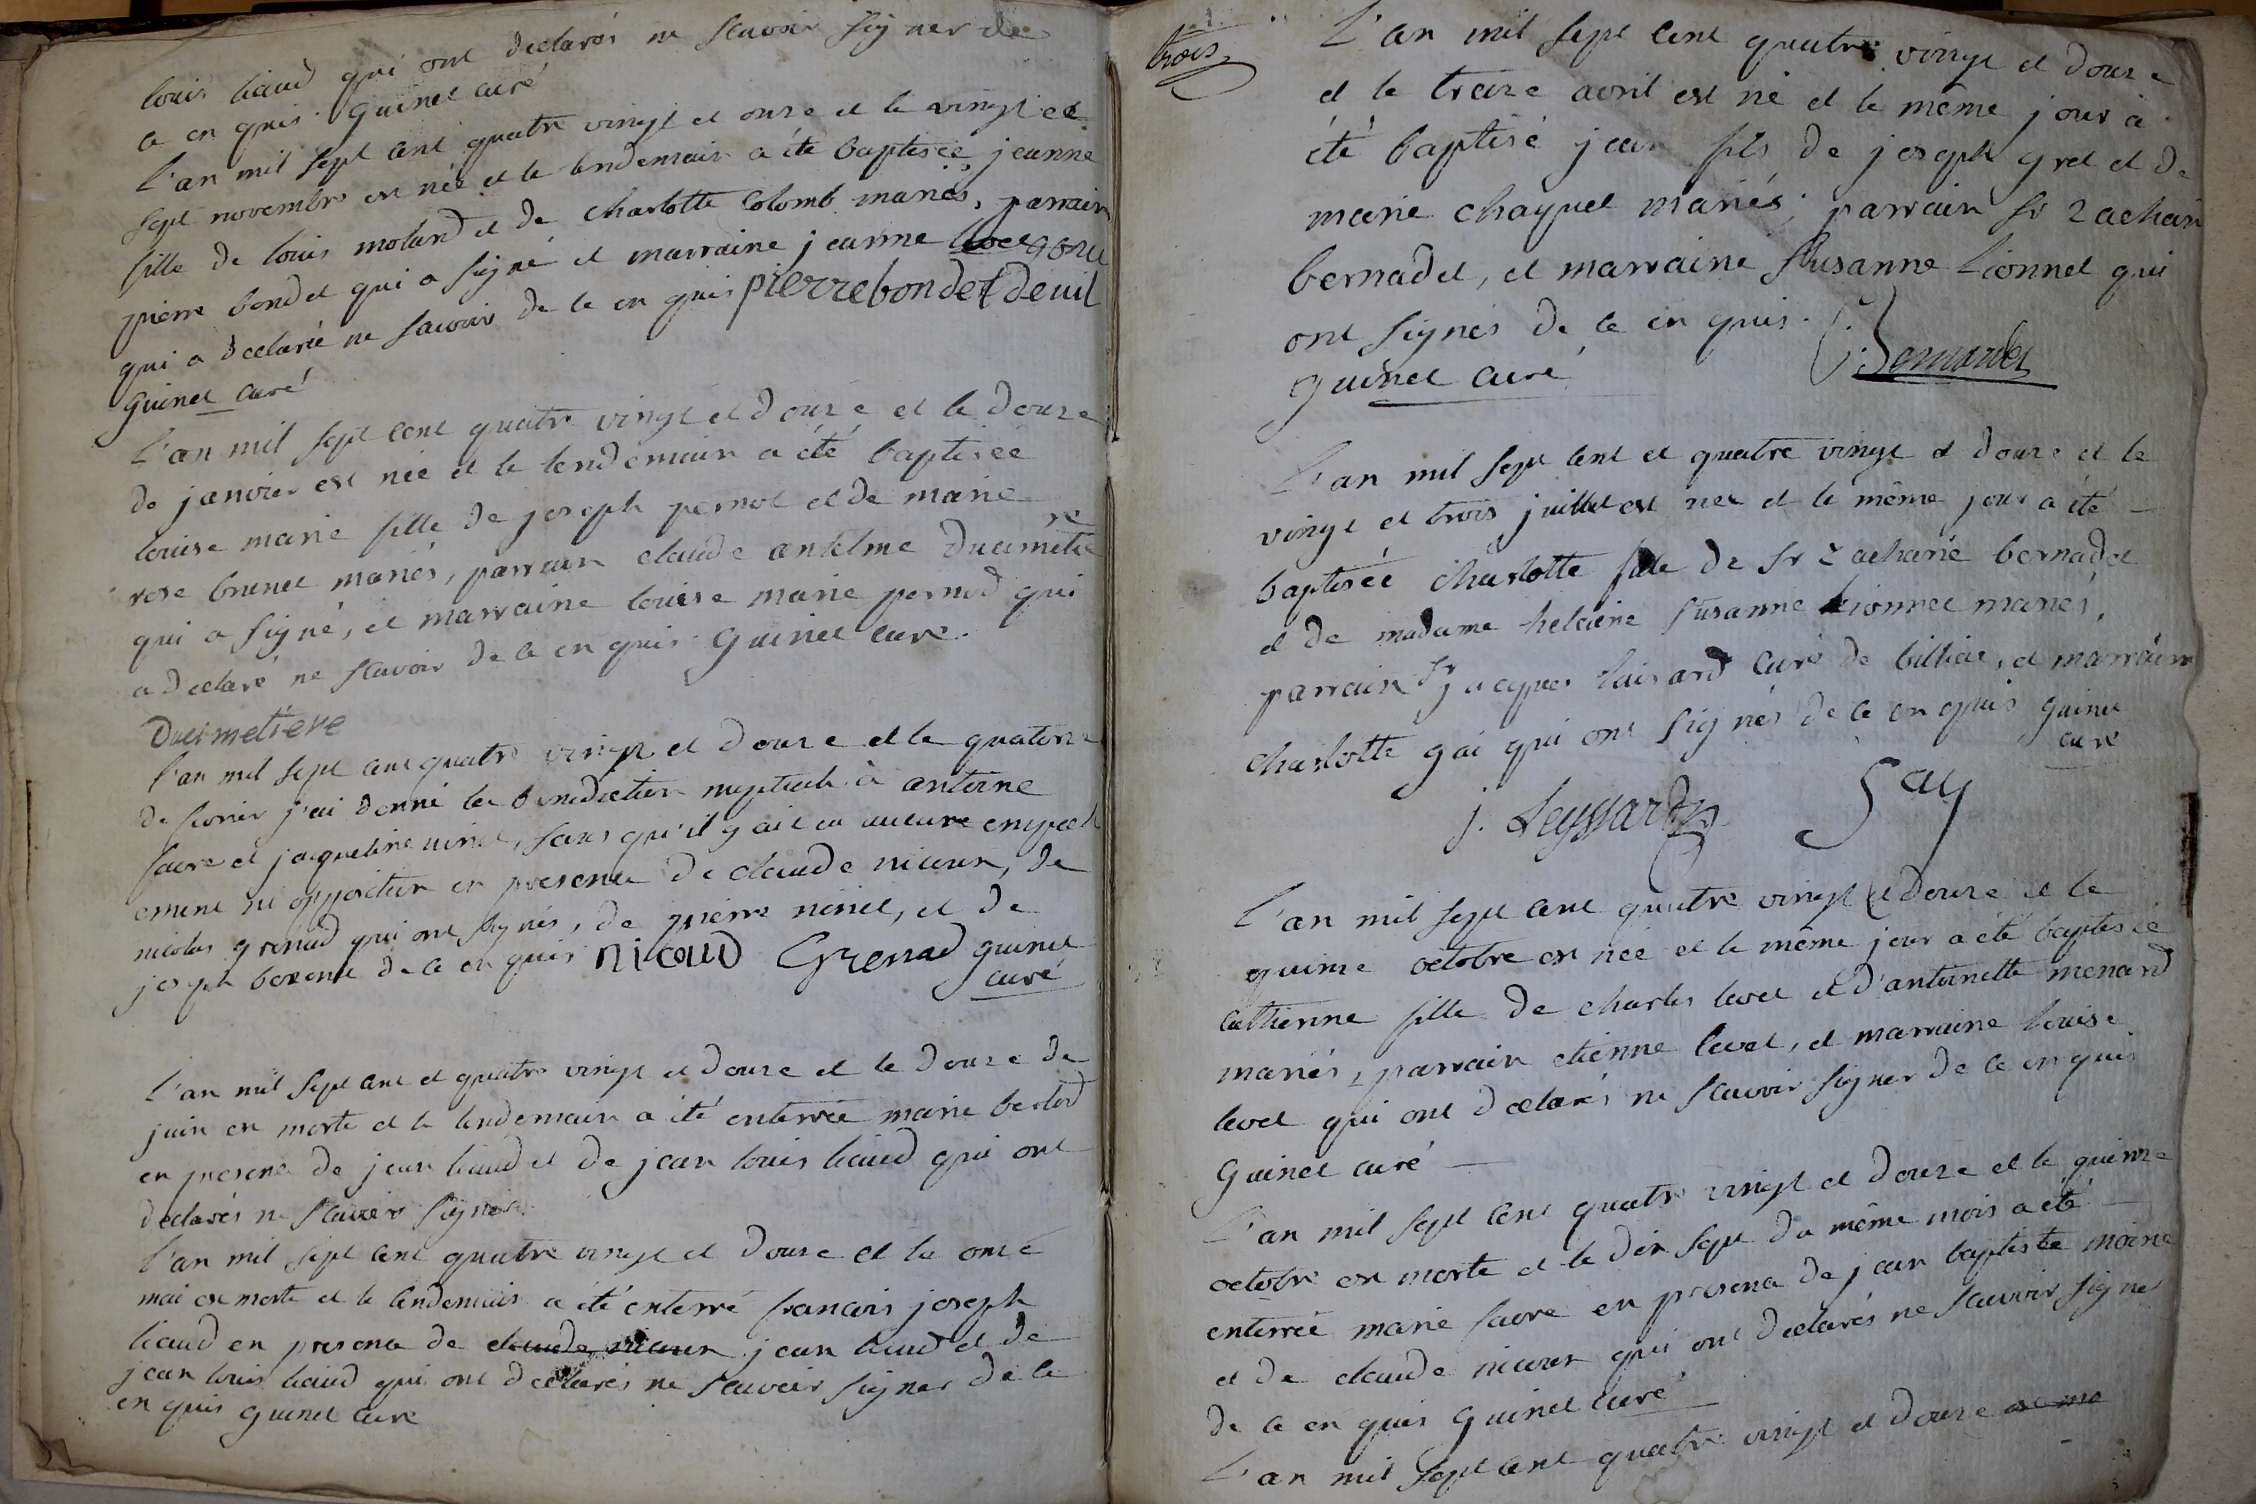 louis liaud qui ont declarés ne scavoir signer de
ce en quis. guinet curé
L'an mil sept cent quatre vingt et onze et le vingt et
sept novembre est née et le lendemain a été baptisée jeanne
fille de louis molard et de charlotte colomb mariés, parrain
pierre bondet qui a signé et marraine jeanne
qui a declarée ne scavoir de ce en quis pierre bondet deuil
Guinet curé
L'an mil sept cent quatre vingt et douze et le douze
de janvier est née et le lendemain a été baptisée
louise marie fille de joseph pernot et de marie
rose brunet mariés, parrain claude antelme ducimetiere
qui a signé, et marraine louise marie pernod qui
a declaré ne scavoir de ce en quis Guinet cure.
Ducimetiere
l'an mil sept cent quatre vingt et douze et le quatorze
de fevrier j'ai donné la benediction nuptiale à antoine
favre et jaqueline ninet, sans qu'il y ait eu aucune empech
ement ni opposition en presence de claude nicoux, de
nicolas grenad qui ont signés, de pierre ninet, et de
joseph de ce en quis nicoud Grenad guinet
curé
L'an mil sept cent et quatre vingt et douze et le douze de
juin est morte et le lendemain a été enterrée marie berlod
en presence de jean liaud et de jean louis liaud qui ont
declarés ne scavoir signer.
L'an mil sept cent quatre vingt et douze et le onze
mai est morte et le lendemain a été enterré francois joseph
liaud en presence de claude nicoux jean liaud et de
jean louis liaud qui ont declarés ne scavoir signer de ce
en quis guinet cure
trois
L'an mil sept cent quatre vingt et douze
et le treize avril est né et le même jour a
été baptisé jean fils de joseph gret et de
marie chapuet mariés; parrain sr zacharie
bernadet, et marraine susanne Lionnet qui
ont signés de ce en quis.
guinet curé Bernardet
L'an mil sept cent et quatre vingt et douze et le
vingt et trois juillet est née et le même jour a été
baptisée charlotte fille de sr zacharie bernadet
et de madame helaine susanne Lionnet mariés,
parrain sr jacques laisard curé de billiat, et marraine
charlotte gai qui ont signés de ce en quis guinet
cure
j. Leyssard Gay
L'an mil sept cent quatre vingt et douze et le
quinze octobre est née et le même jour a été baptisée
catherine fille de charles levet et d'antoinette menard
mariés, parrain etienne levet, et marraine louise
levet qui ont declarés ne scavoir signer de ce en quis
Guinet curé
L'an mil sept cent quatre vingt et douze et le quinze
octobre est morte et le dix sept du même mois a été
enterrée marie favre en presence de jean baptiste moine
et de claude nicoux qui ont declarés ne scavoir signe
de ce en quis Guinet curé
L'an mil sept cent quatre vingt et douze est mo